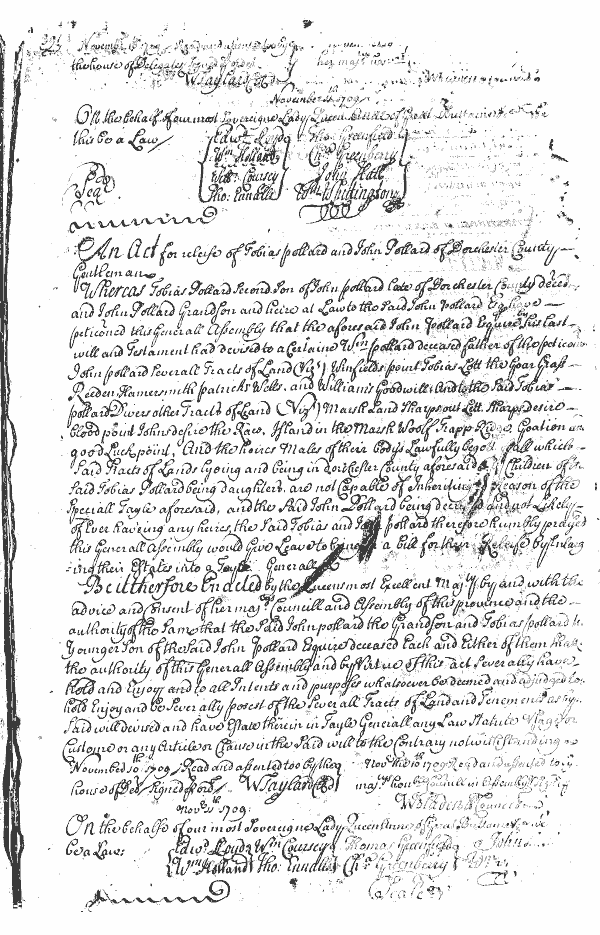 November 10 1709 Read and assented to by
the house of Delegates
WTaylard
November 11th 1709
On the behalf of our most Sovereigne Lady Queen Anne of Great Brittaine
this be a Law
Edwd Lloyd Tho: Greenfield
Wm Holland Cha: Greenberry
Wm: Coursey John Hall
Tho: Ennalls Wm Whittington
An Act for releise of Tobias pollard and John Pollard of Dorchester County
Gentleman
Whereas Tobias Pollard Second Son of John pollard late of Dorchester County deced
and John Pollard Grandson and heire at Law to the Said John Pollard Esqr have
peticoned this Generall Assembly that the aforesaid John Pollard Esquire by his last
will and Testament had devised to a Certaine Wm pollard deceased father of the peticoner
John pollard Severall Tracts of Land (Vizt) Winfields point Tobias Lott the Goar Graft
Reeden Hamersmith patricks Wells, and Williams Goodwill And to the Said Tobias
pollard Divers other Tracts of Land (Vizt) Marsh Land Sharps out Lett Sharps desire
blood point Johns desire the Race, Island in the Marsh Woolf Trapp Ridge Goation
good Luck point, And the heires Males of their bodys Lawfully begott all which
Said Tracts of Lands Lyeing and being in Dorchester County aforesaid Children of the
Said Tobias Pollard being daughters, are not Capable of Inheriting reason of the
Speciall Tayle aforesaid, and the Said John Pollard being and not Likely
of Ever haveing any heires, the Said Tobias and John pollard therefore humbly prayed
this Generall Assembly would Give Leave to bring a bill for their Releife by Enlarg
ing their Estates into a Tayle Generall
Be it therfore Enacted by the Queens most Excellent Maj'ty by and with the
advice and Consent of her majtys Councill and Assembly of this province and the
authority of the Same that the Said John pollard the Grandson and Tobias pollard the
Younger Son of the Said John Pollard Esquire deceased Each and Either of them shall
the authority of this Generall Assembly and by Virtue of this act Severally have
hold and Enjoy and to all Intents and purposes whatsoever be deemed and adjudged to
hold Enjoy and be Severally possest of the Severall Tracts of Land and Tenements as by
Said will devised and have Estate therein in Tayle Generall any Law Statute Usage or
Custome or any Article or Clause in the Said will to the Contrary notwithstanding
November 10th 1709 Read and assented too by the Novr the 10th 1709 Read and assented to by
house of Del Signed p ord. WTaylard majtys honble Councill in Assembly
WBladen Cl Councill
Novr 11th 1709
On the behalfe of our most Sovereigne Lady Queen Anne of Great Brittaine
be a Law: Edwd Lloyd Wm Coursey Thomas Greenfield John
Wm Holland Tho: Ennalls Cha: Greenberry Wm